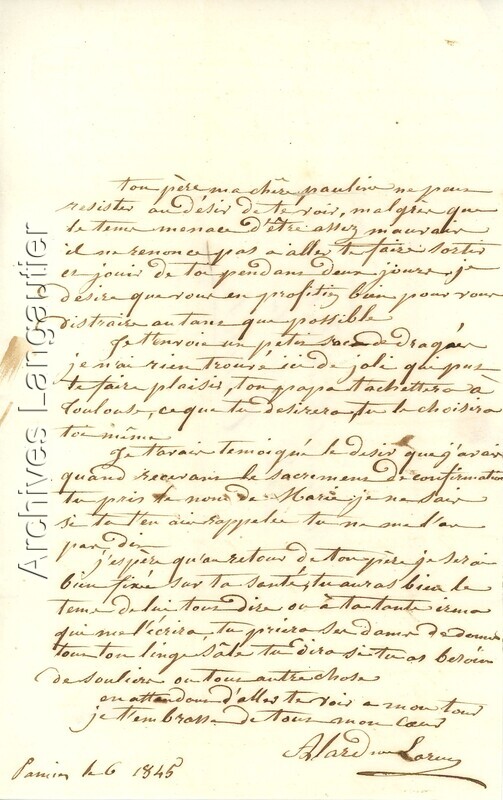 ton père ma chère pauline ne peux
resister au désir de te voir, malgrèr que
le tems menace d'être assez mauvais
il ne renonce pas a aller te faire sortir
et jouir de toi pendans deux jours, je
désire que vous en profitiez bien pour vous
distraire autans que possible
Je t'envoie un petis sac de dragées
je n'ai rien trouvé ici de joli qui pus
te faire plaisir, ton papa t'achettera a
Toulouse, ce que tu desirera, tu le choisira
toi même
Je t'avais temoigné le desir que j'avais
quand recevans le sacremens de confirmation
tu pris le nom de Marie, je ne sais
si tu t'en ais rappelée tu ne me l'as
pas dis
j'espère qu'au retour de ton père je serai
bien fixée sur ta santé, tu auras bien le
tems de lui tous dire ou à ta tante
qui me l'écrira, tu priera ses dames de donner
tous ton linge sale tu dira si tu as besoin
de souliers ou tous autre chose
en attendans d'aller te voir a mon tour
je t'embrasse de tous mon cœur
Alard
Pamiers le 6 1845
Archives Langautier